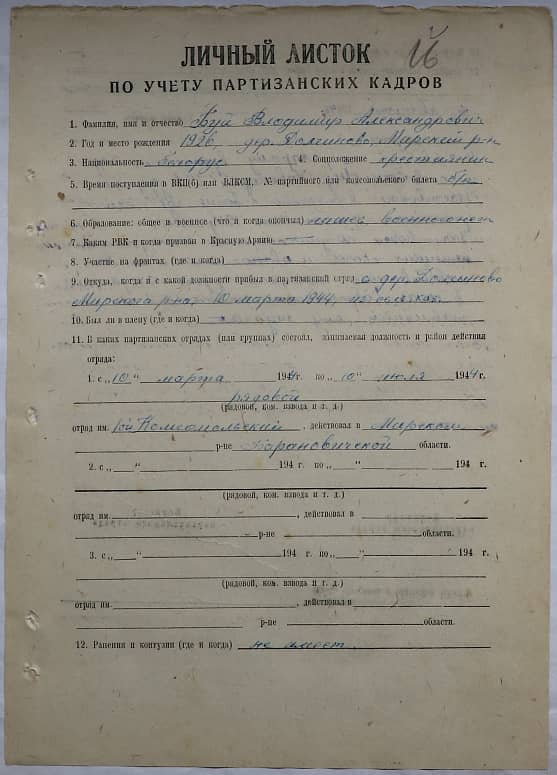 16
ЛИЧНЫЙ ЛИСТОК
ПО УЧЕТУ ПАРТИЗАНСКИХ КАДРОВ
1. Фамилия, имя и отчество Буй Владимир Александрович
2. Год и место рождения 1926, дер. Долчиново, Мирский р-н
3. Национальность белорус 4. Соцположение крестьянин
5. Время поступления в ВКП(б) или ВЛКСМ, № партийного или комсомольского билета
6. Образование: общее и военное (что и когда окончил)
7. Каким РВК и когда призван в Красную Армию —
8. Участие на фронтах (где и когда) —
9. Откуда, когда и с какой должности прибыл в партизанский отряд с дер. Долчиново
Мирского р-на, 10 марта 1944,
10. Был ли в плену (где и когда)
11. В каких партизанских отрядах (или группах) состоял, занимаемая должность и район действия
отряда:
1. с „10" марта 1944 г. по „10" июля 1944 г.
рядовой
(рядовой, ком. взвода и т. д.)
отряд им. Комсомольский, действовал в Мирском
р-не Барановичской области.
2. с „ " 194 г. по „ " 194 г.
(рядовой, ком. взвода и т. д.)
отряд им. , действовал в
р-не области.
3. с „ " 194 г. по „ " 194 г.
(рядовой, ком. взвода и т. д.)
отряд им. , действовал в
р-не области.
12. Ранения и контузии (где и когда) не имеет.